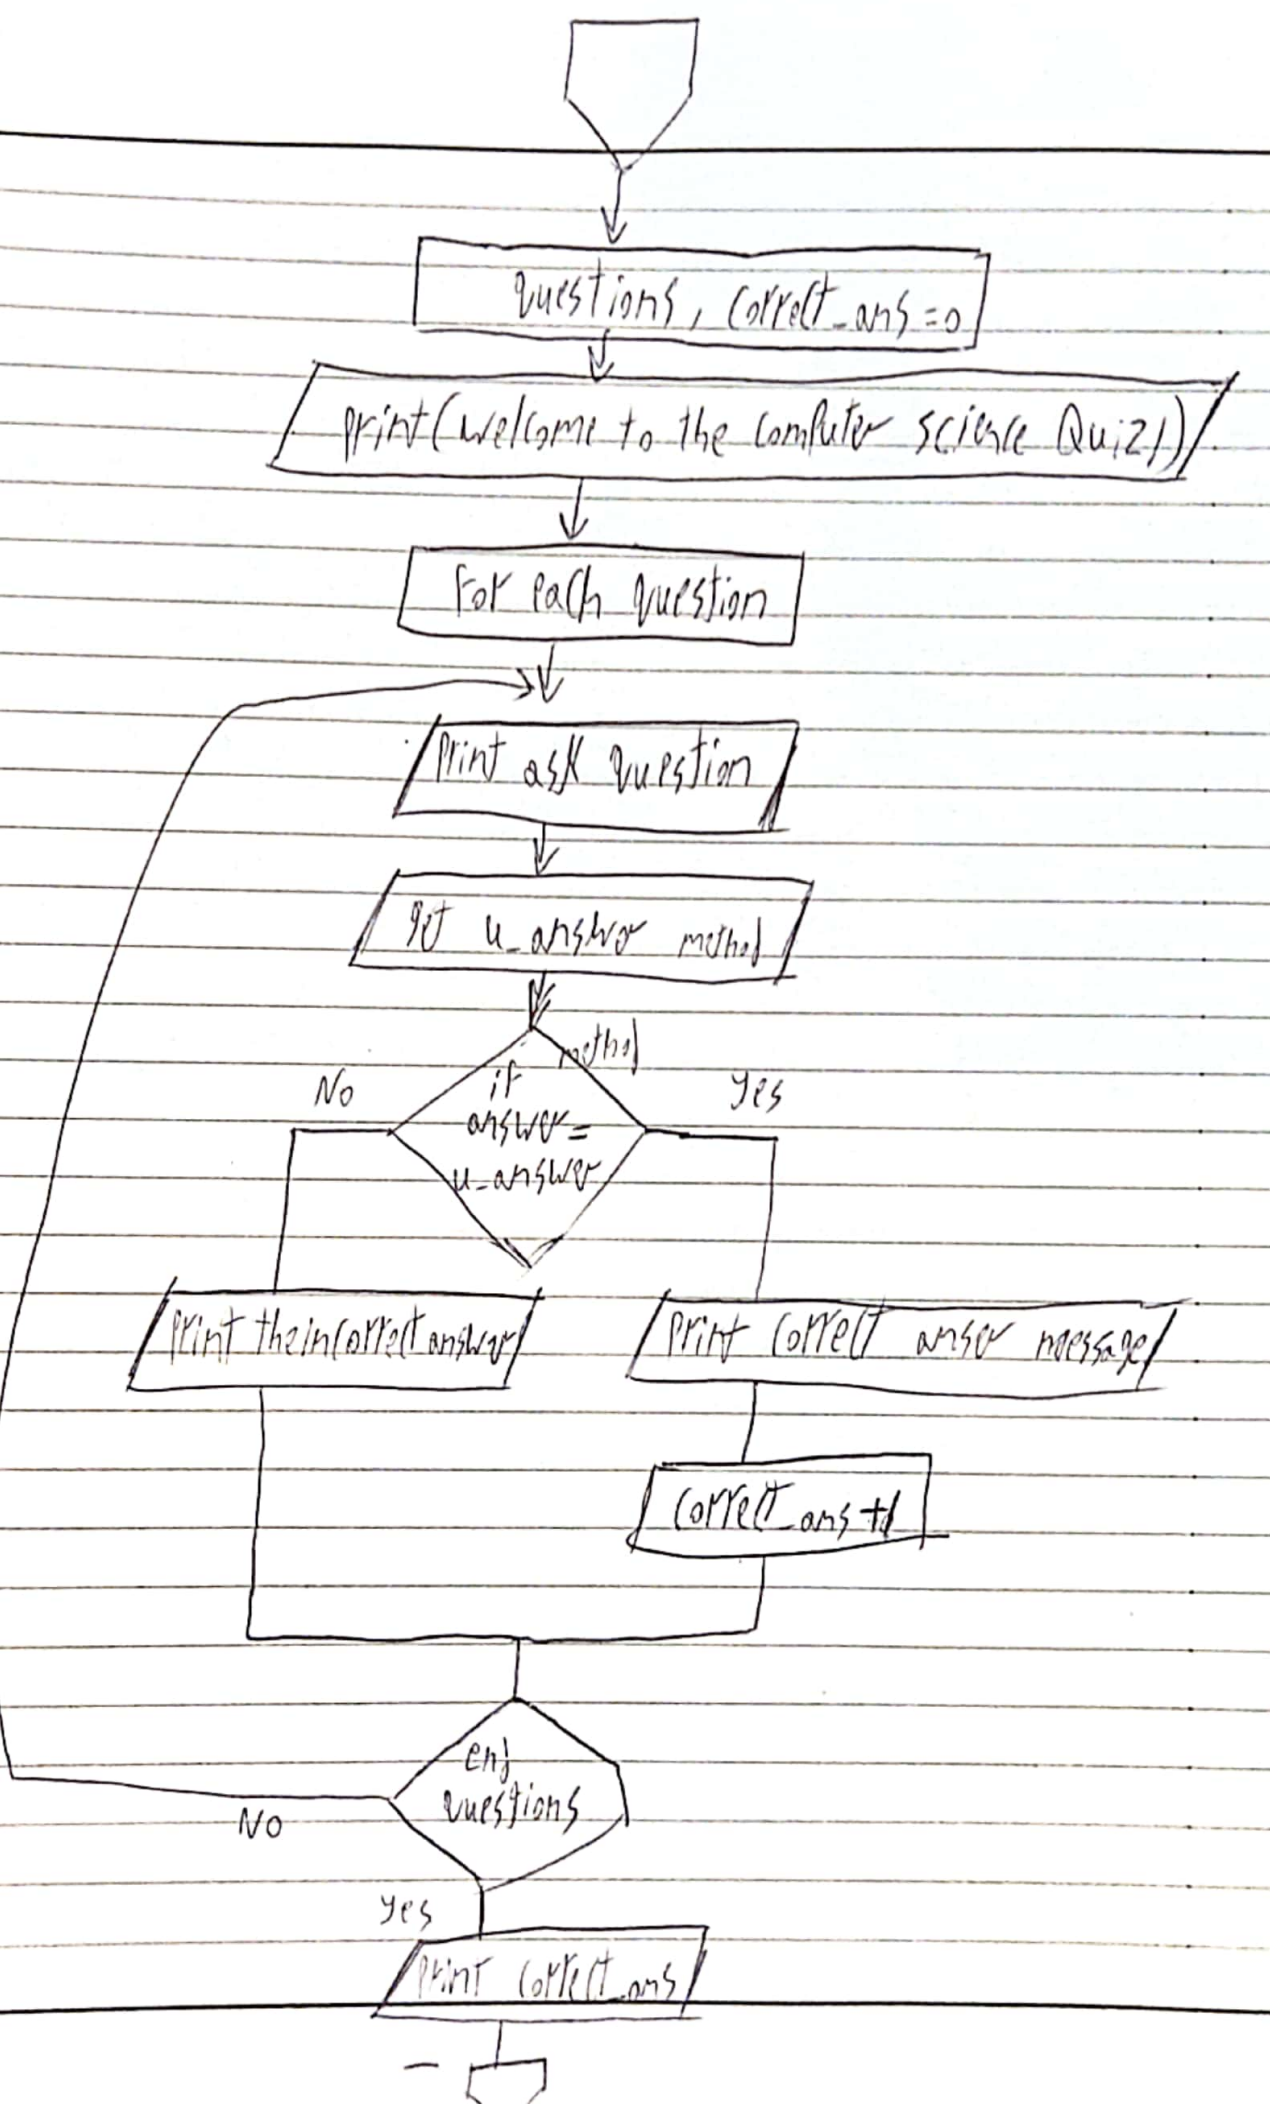 questions, correct_ans = 0
print(welcome to the computer science Quiz!)
For each question
print ask question
get u_answer method
method
No
if
yes
answer =
u_answer
print the incorrect answer
print correct anser message
correct_ans +1
end
questions
No
yes
print correct_ans